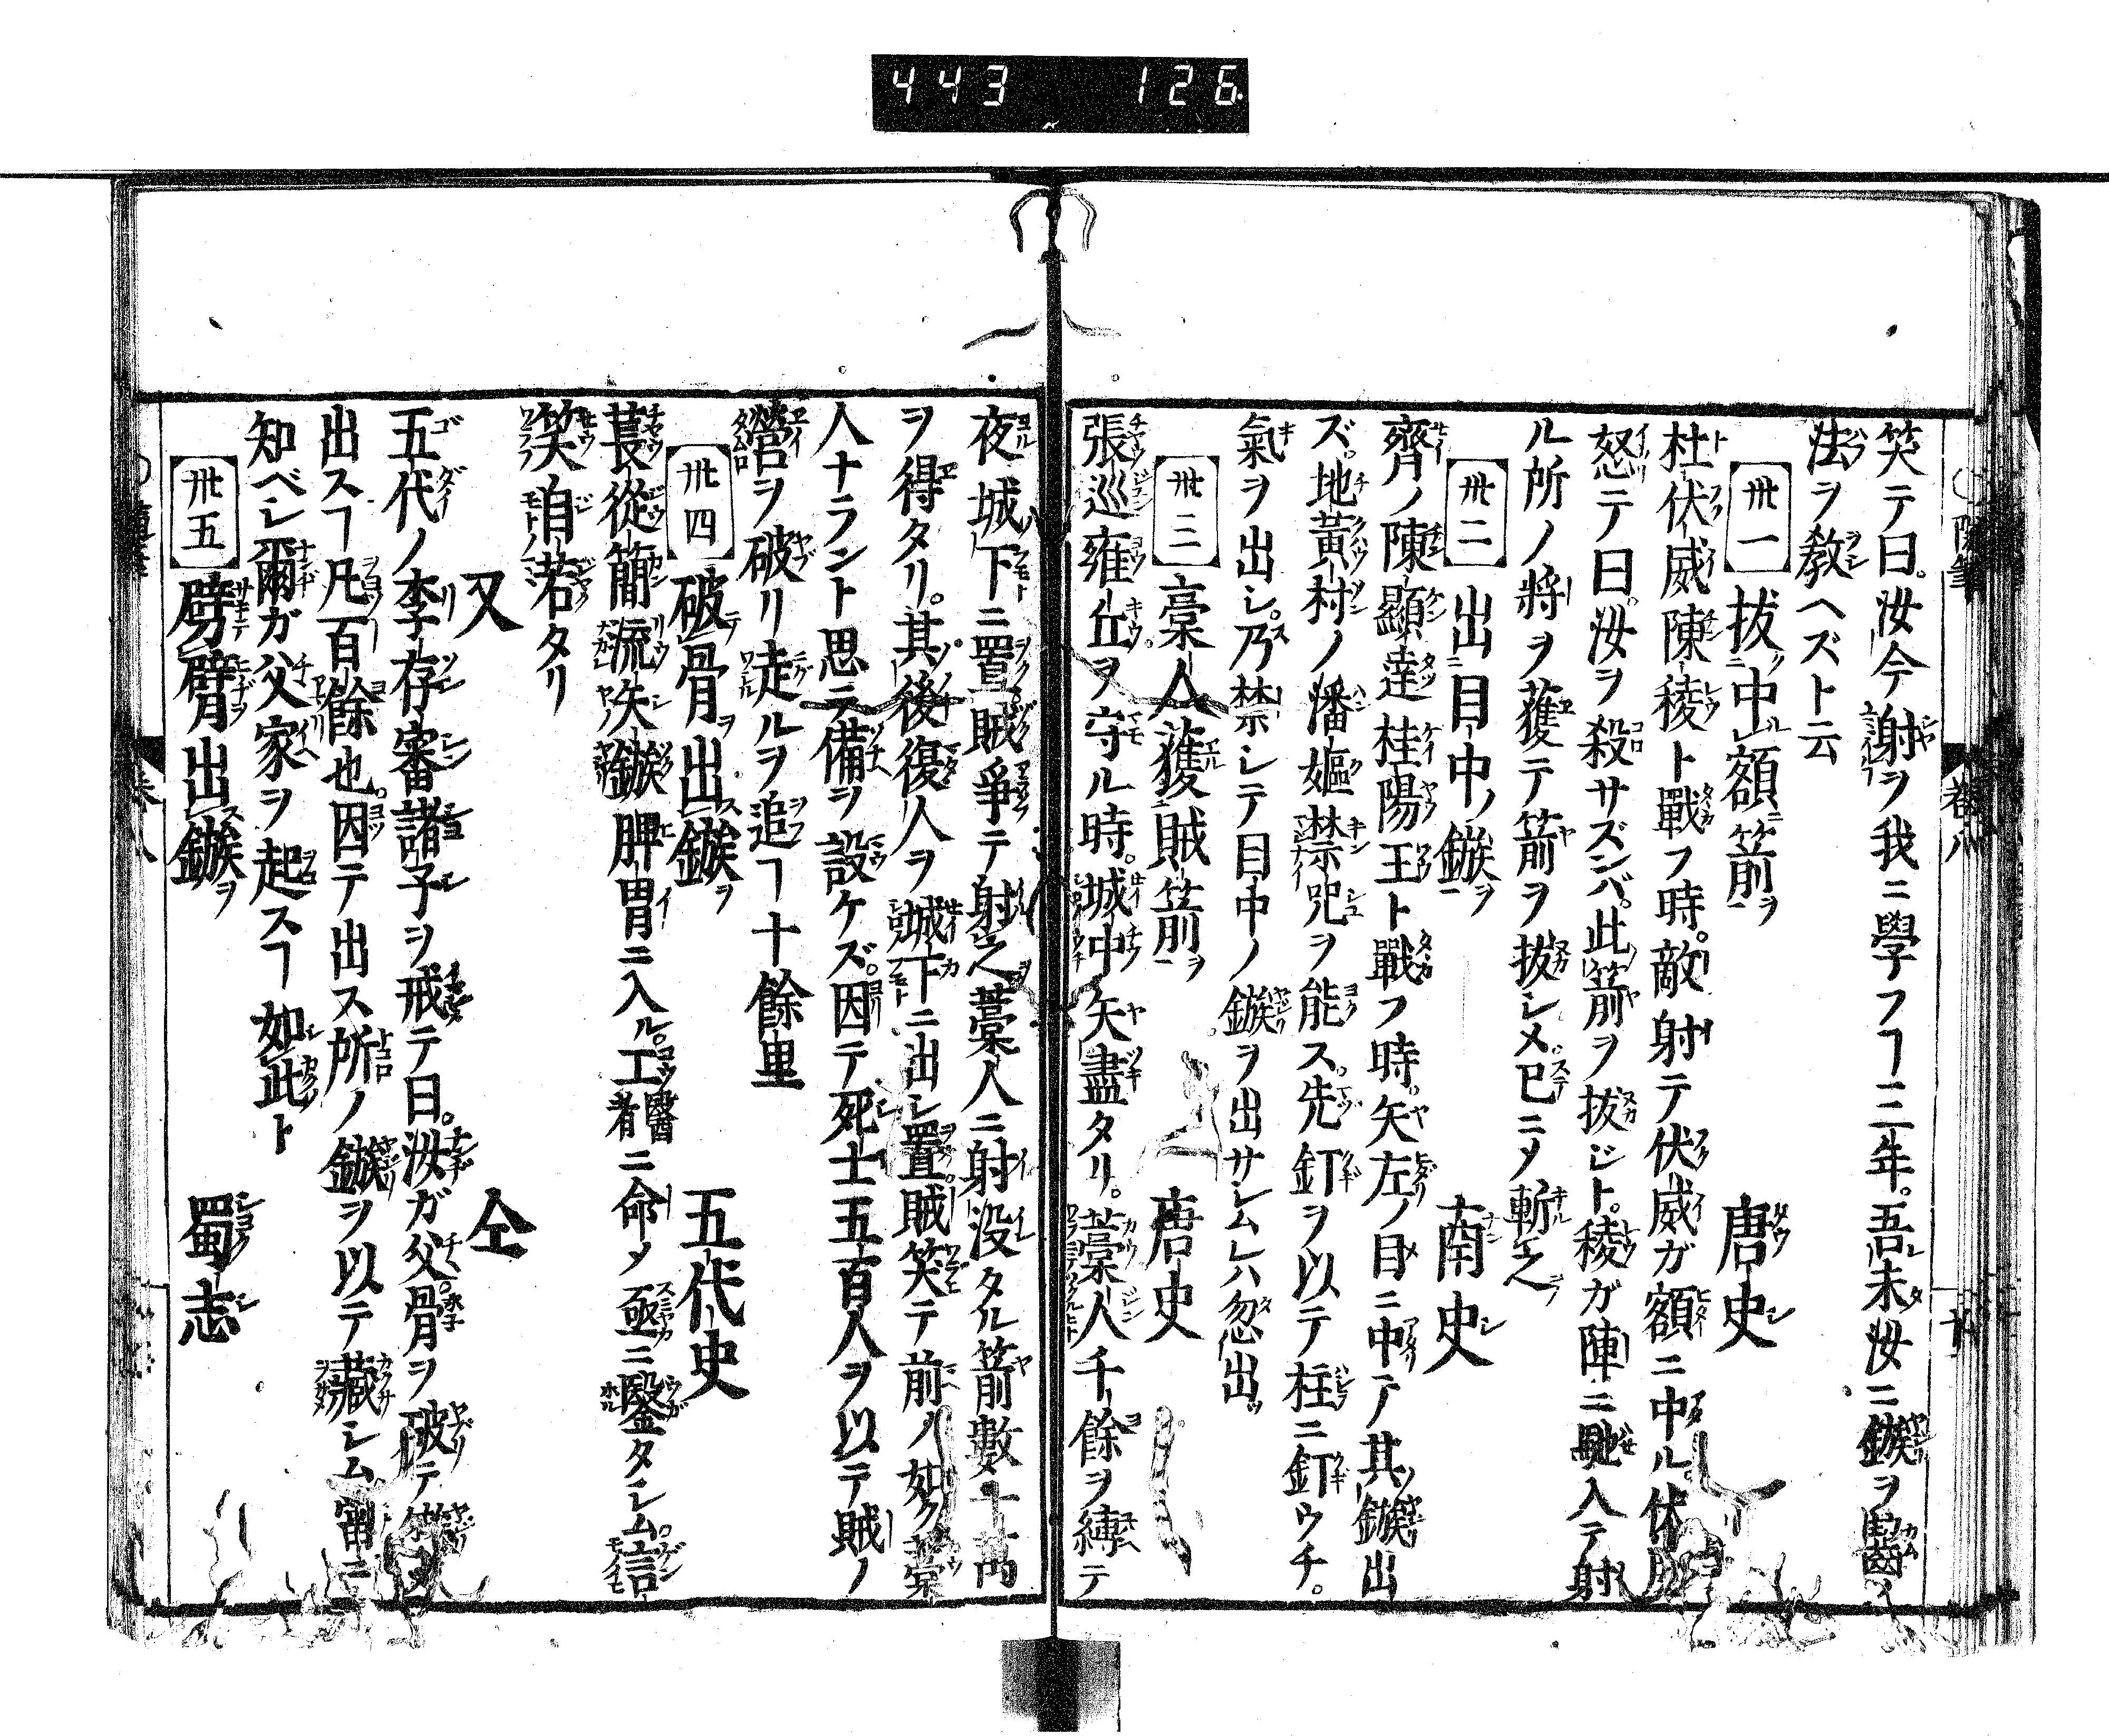 443 126
笑テ曰。汝今謝ヲ我ニ學フヿ三年。吾未汝ニ鏃ヲ齧ム
法ヲ教ヘズト云
卅一 拔中額箭ヲ 唐史
杜伏威陳稜ト戰フ時。敵射テ伏威ガ額ニ中ル。伏威
怒テ曰。汝ヲ殺サズンバ。此箭ヲ拔ジト。稜ガ陣ニ馳入テ射
ル所ノ將ヲ獲テ箭ヲ拔シメ。已ニメ斬之
卅二 出目中ノ鏃ヲ 南史
齊ノ陳顯達桂陽王ト戰フ時。矢左ノ目ニ中テ其鏃出
ズ。地黃村ノ潘嫗禁咒ヲ能ス。先釘ヲ以テ柱ニ釘ウチ。
氣ヲ出シ。乃禁シテ目中ノ鏃ヲ出サシムレハ忽出ッ
卅三 藁人獲賊箭ヲ 唐史
張巡雍丘ヲ守ル時。城中矢盡タリ。藁人千餘ヲ縳テ
夜城下ニ置賊爭テ射之藁人ニ射沒タル箭數十万
ヲ得タリ。其後復人ヲ城下ニ出シ置。賊笑テ前ノ如ク藁
人ナラント思テ備ヲ設ケズ。因テ死士五百人ヲ以テ賊ノ
營ヲ破リ走ルヲ追ヿ十餘里
卅四 破骨出鏃ヲ 五代史
萇從簡流矢鏃髀胃ニ入ル。工醫者ニ命メ亟ニ鑿タシム。言
笑自若タリ
又 仝
五代ノ李存審諸子ヲ戒テ曰。汝ガ父骨ヲ破テ鏃ヲ
出スヿ凡百餘也。因テ出ス所ノ鏃ヲ以テ藏シム。
知ベシ爾ガ父家ヲ起スヿ如此ト
卅五 劈臂出鏃ヲ 蜀志